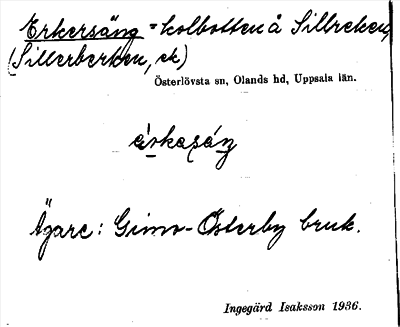 Erkersäng = kolbotten å Sillreken,
(Sillerberken, ek)
Österlövsta sn, Olands hd, Uppsala län.
Ägare: Gimo-Österby bruk.
Ingegärd Isaksson 1936.